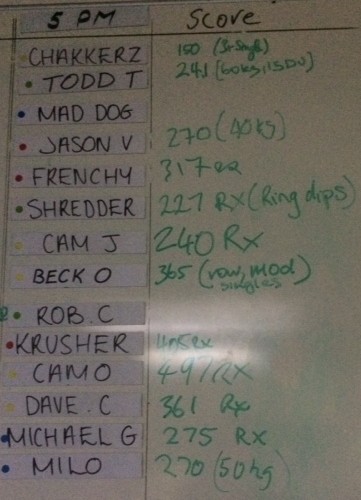 5 PM Score
CHAKKERZ 150
TODD T 241 (60kg,
MAD DOG
JASON V 270 (40kg)
FRENCHY 317
SHREDDER 227 RX (Ring dips)
CAM J 240 Rx
BECK O 365 (row, mod
singles)
ROB.C
KRUSHER 405 Rx
CAM O 497 RX
DAVE.C 361 Rx
MICHAEL G 275 RX
MILO 270 (50kg)